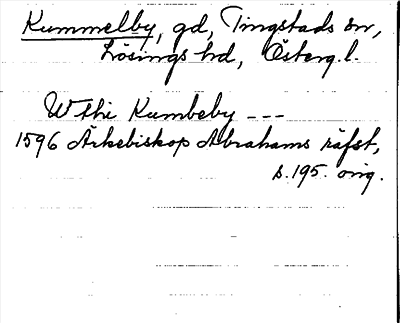 Kummelby, gd, Tingstads sn,
Lösings hd, Österg.l.
Wthi Kumbeby ---
1596 Ärkebiskop Abrahams räfst,
s. 195. orig.